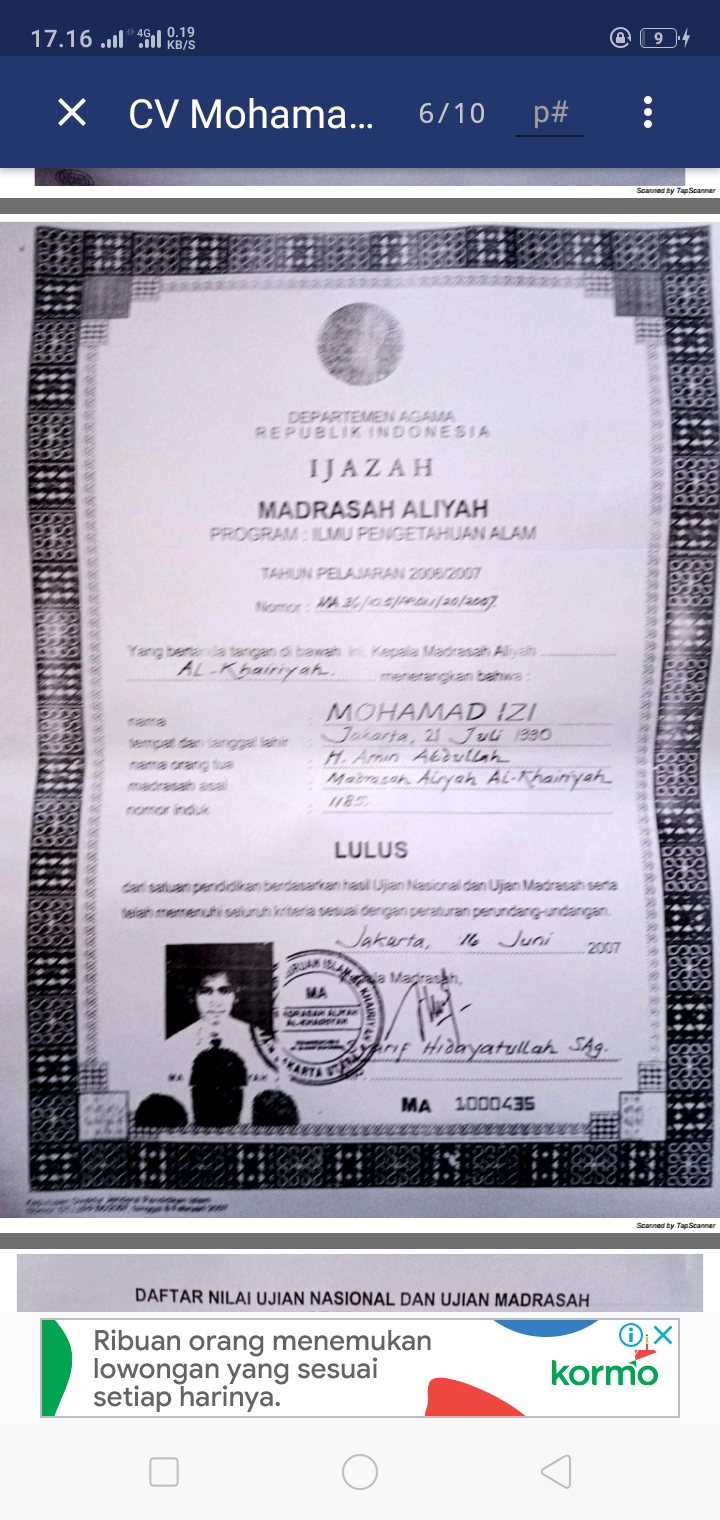 17.16 4G 0.19 KB/S 9
CV Mohama... 6/10 p#
Scanned by TapScanner
DEPARTEMEN AGAMA
REPUBLIK INDONESIA
IJAZAH
MADRASAH ALIYAH
PROGRAM : ILMU PENGETAHUAN ALAM
TAHUN PELAJARAN 2006/2007
Nomor :
Yang bertanda tangan di bawah ini, Kepala Madrasah Aliyah
AL-Khairiyah. menerangkan bahwa :
nama : MOHAMAD IZI
tempat dan tanggal lahir : Jakarta, 21 Juli 1990
nama orang tua : H. Amin Abdullah
madrasah asal : Madrasah Aliyah Al-Khairiyah
nomor induk : 1185.
LULUS
dari satuan pendidikan berdasarkan hasil Ujian Nasional dan Ujian Madrasah serta
telah memenuhi seluruh kriteria sesuai dengan peraturan perundang-undangan.
Jakarta, 16 Juni 2007
Madrasah,
MA
Hidayatullah SAg.
MA 1000435
Scanned by TapScanner
DAFTAR NILAI UJIAN NASIONAL DAN UJIAN MADRASAH
Ribuan orang menemukan
lowongan yang sesuai
setiap harinya.
kormo